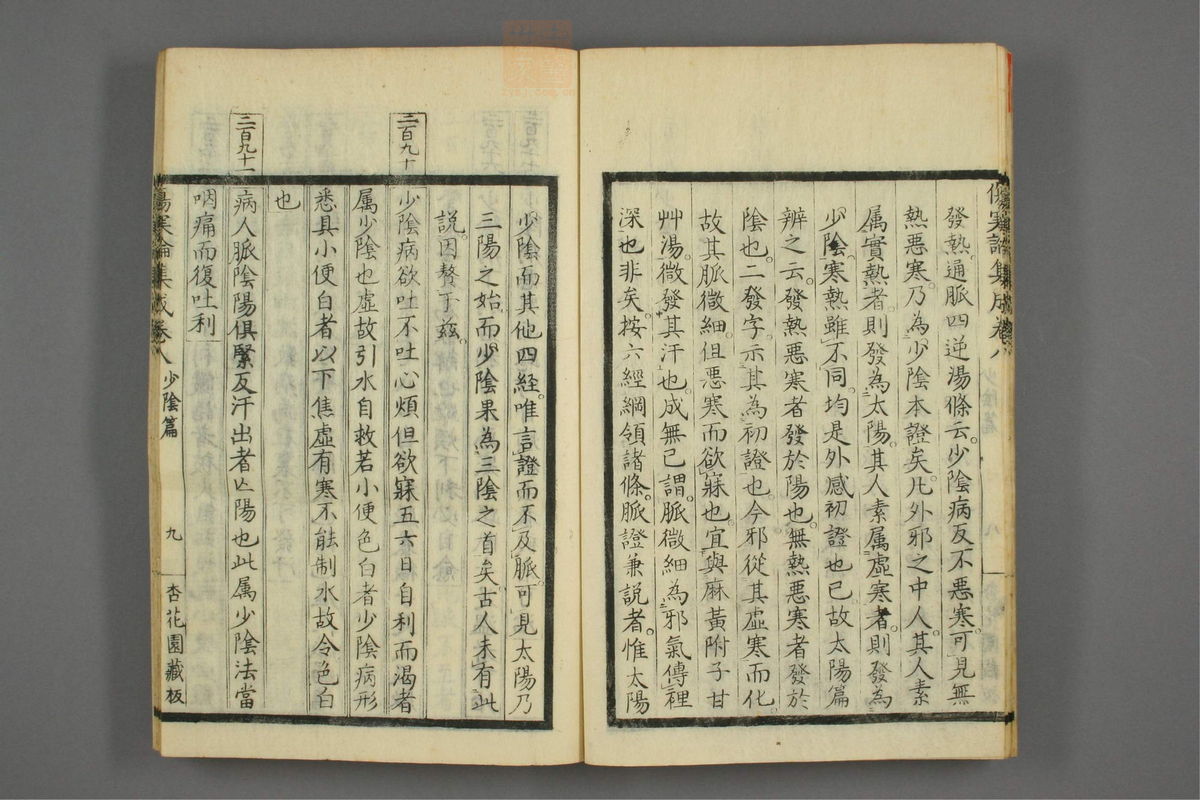 傷寒論集成卷八
發熱通脈四逆湯條云少陰病反不惡寒可見無
熱惡寒乃為少陰本證矣凡外邪之中人其人素
属實熱者則發為太陽其人素属虛寒者則發為
少陰寒熱雖不同均是外感初證也已故太陽篇
辨之云發熱惡寒者發於陽也無熱惡寒者發於
陰也二發字示其為初證也今邪從其虛寒而化
故其脈微細但惡寒而欲寐也宜與麻黃附子甘
艸湯微發其汗也成無已謂脈微細為邪氣傳裡
深也非矣按六經綱領諸條脈證兼說者惟太陽
少陰而其他四經唯言證而不及脈可見太陽乃
三陽之始而少陰果為三陰之首矣古人未有此
說因贅于茲
三百九十
少陰病欲吐不吐心煩但欲寐五六日自利而渴者
属少陰也虛故引水自救若小便色白者少陰病形
悉具小便白者以下焦虛有寒不能制水故令色白
也
三百九十一
病人脈陰陽俱緊反汗出者亡陽也此属少陰法當
咽痛而復吐利
傷寒論集成卷八 少陰篇 九 杏花園藏板